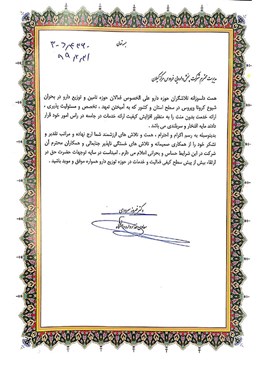 همت دلسوزانه تلاشگران حوزه دارو علی الخصوص فعالان حوزه تامین و توزیع دارو در بحران
شیوع کرونا ویروس در سطح استان و کشور که به آمیختن تعهد، تخصص و مسئولیت پذیری،
ارائه خدمت بدون منت را به منظور افزایش کیفیت ارائه خدمات در جامعه در راس امور خود قرار
دادند مایه افتخار و سربلندی می باشد.
بدینوسیله به رسم اکرام و احترام، همت و تلاش های ارزشمند شما ارج نهاده و مراتب تقدیر و
تشکر خود را از همکاری صمیمانه و تلاش های خستگی ناپذیر جنابعالی و همکاران محترم آن
شرکت در این شرایط حساس و بحرانی اعلام می دارم. امیداست در سایه توجهات حضرت حق در
ارتقاء بیش از پیش سطح کیفی فعالیت و خدمات در حوزه توزیع دارو همواره موفق و موید باشید.